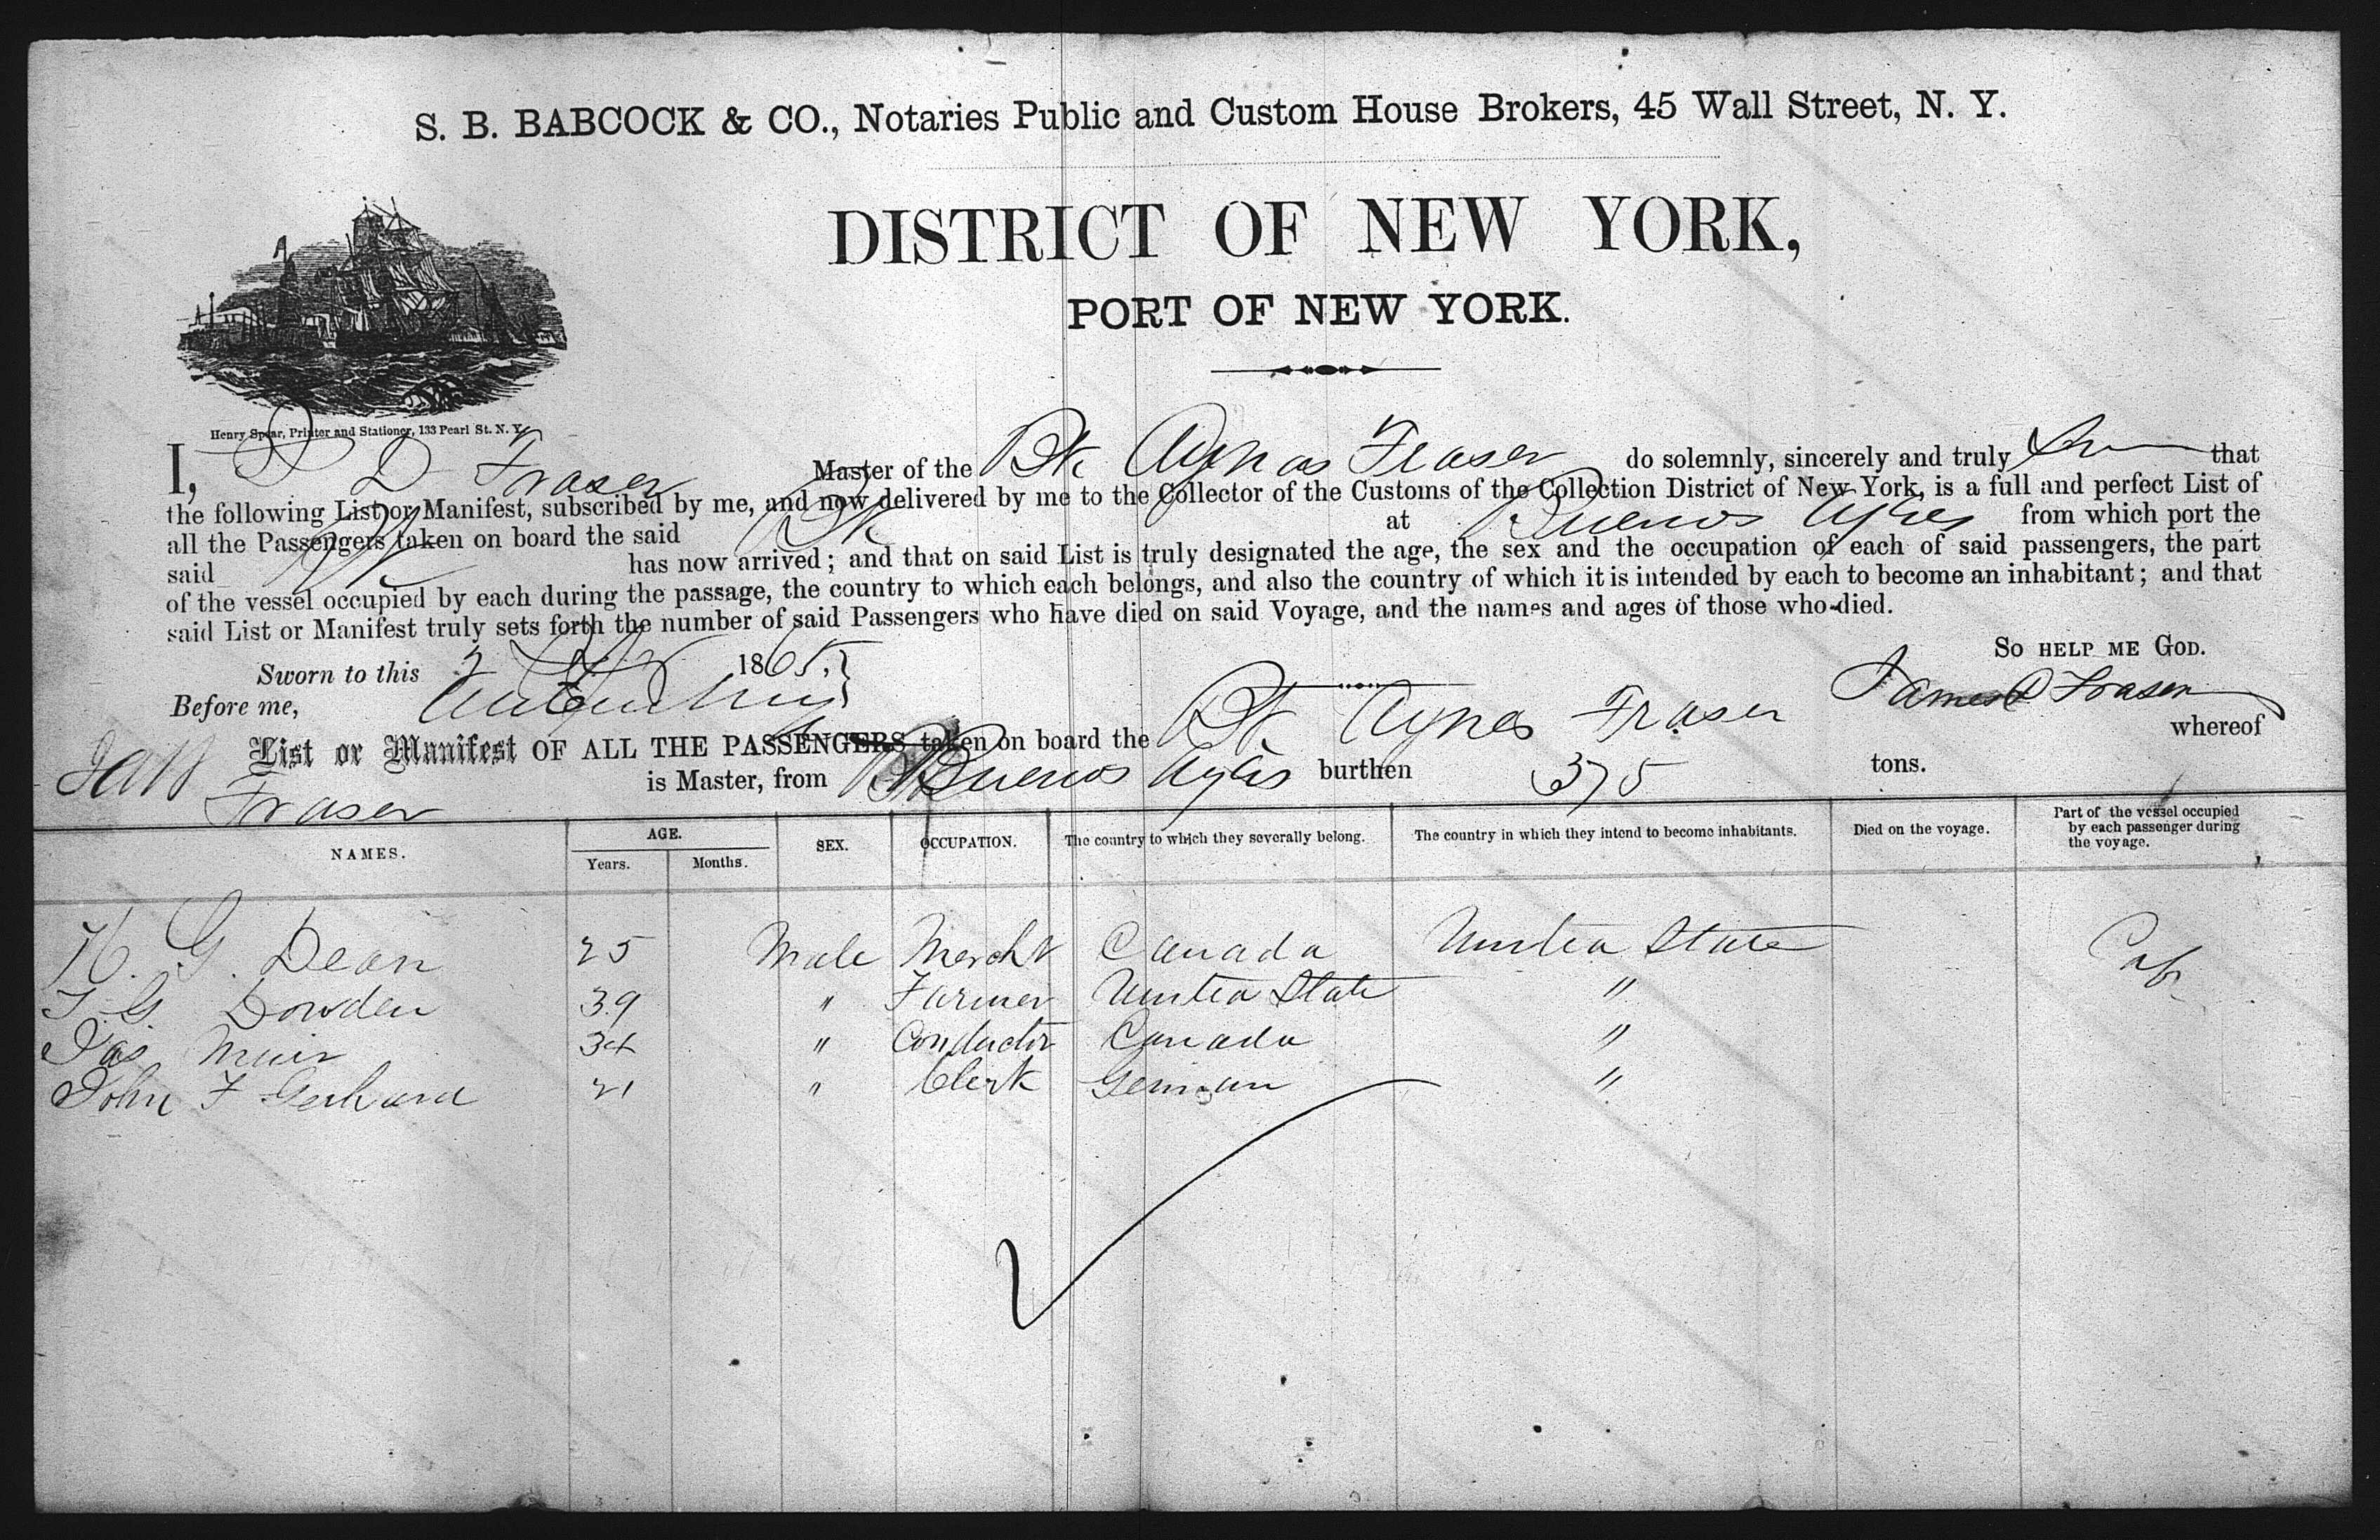 S. B. BABCOCK & CO., Notaries Public and Custom House Brokers, 45 Wall Street, N. Y.
DISTRICT OF NEW YORK,
PORT OF NEW YORK.
Henry Spear, Printer and Stationer, 133 Pearl St. N. Y.
I, J D Fraser Master of the Bk Agnes Fraser do solemnly, sincerely and truly that
the following List or Manifest, subscribed by me, and now delivered by me to the Collector of the Customs of the Collection District of New York, is a full and perfect List of
all the Passengers taken on board the said Bk at Buenos Ayres from which port the
said Bk has now arrived; and that on said List is truly designated the age, the sex and the occupation of each of said passengers, the part
of the vessel occupied by each during the passage, the country to which each belongs, and also the country of which it is intended by each to become an inhabitant; and that
said List or Manifest truly sets forth the number of said Passengers who have died on said Voyage, and the names and ages of those who died.
SO HELP ME GOD.
Sworn to this 2 1865.
Before me, James D Fraser
List or Manifest OF ALL THE PASSENGERS taken on board the Bk Agnes Fraser whereof
Fraser is Master, from Buenos Ayres burthen 375 tons.
NAMES. AGE. Years. Months. SEX. OCCUPATION. The country to which they severally belong. The country in which they intend to become inhabitants. Died on the voyage. Part of the vessel occupied by each passenger during the voyage.
H. G. Dean 25 Male Mercht Canada United State Cab
T. G. Dowden 39 " Farmer United State "
Jas Muir 34 " Conductor Canada "
John F Gerhard 21 " Clerk German "